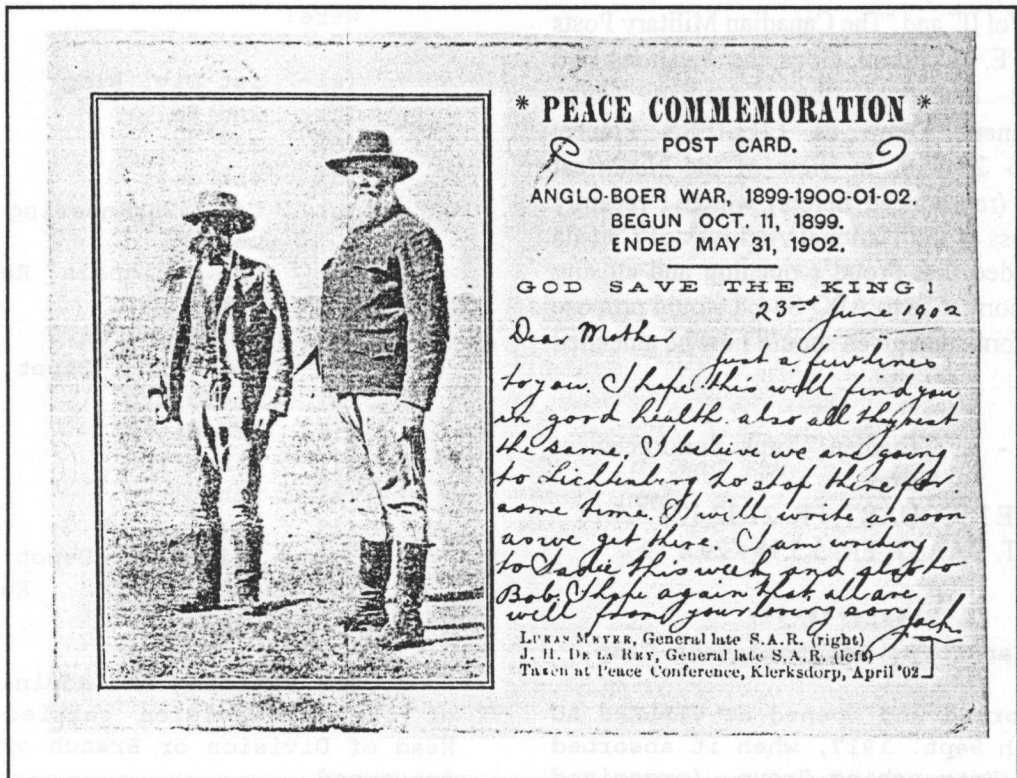 * PEACE COMMEMORATION *
POST CARD.
ANGLO-BOER WAR, 1899-1900-01-02.
BEGUN OCT. 11, 1899.
ENDED MAY 31, 1902.
GOD SAVE THE KING!
23rd June 1902
Dear Mother
just a few lines
to you. I hope this will find you
in good health. also all the rest
the same. I believe we are going
to Lichtenberg to stop there for
some time. I will write as soon
as we get there. I am writing
to Sadie this week and also to
Bob. I hope again that all are
well from your loving son Jack
LUKAS MEYER, General late S.A.R. (right)
J. H. DE LA REY, General late S.A.R. (left)
Taken at Peace Conference, Klerksdorp, April '02